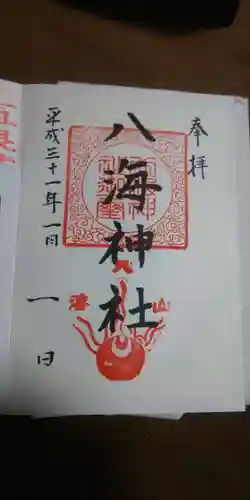 奉拝
八海神社
平成三十一年一月
一日